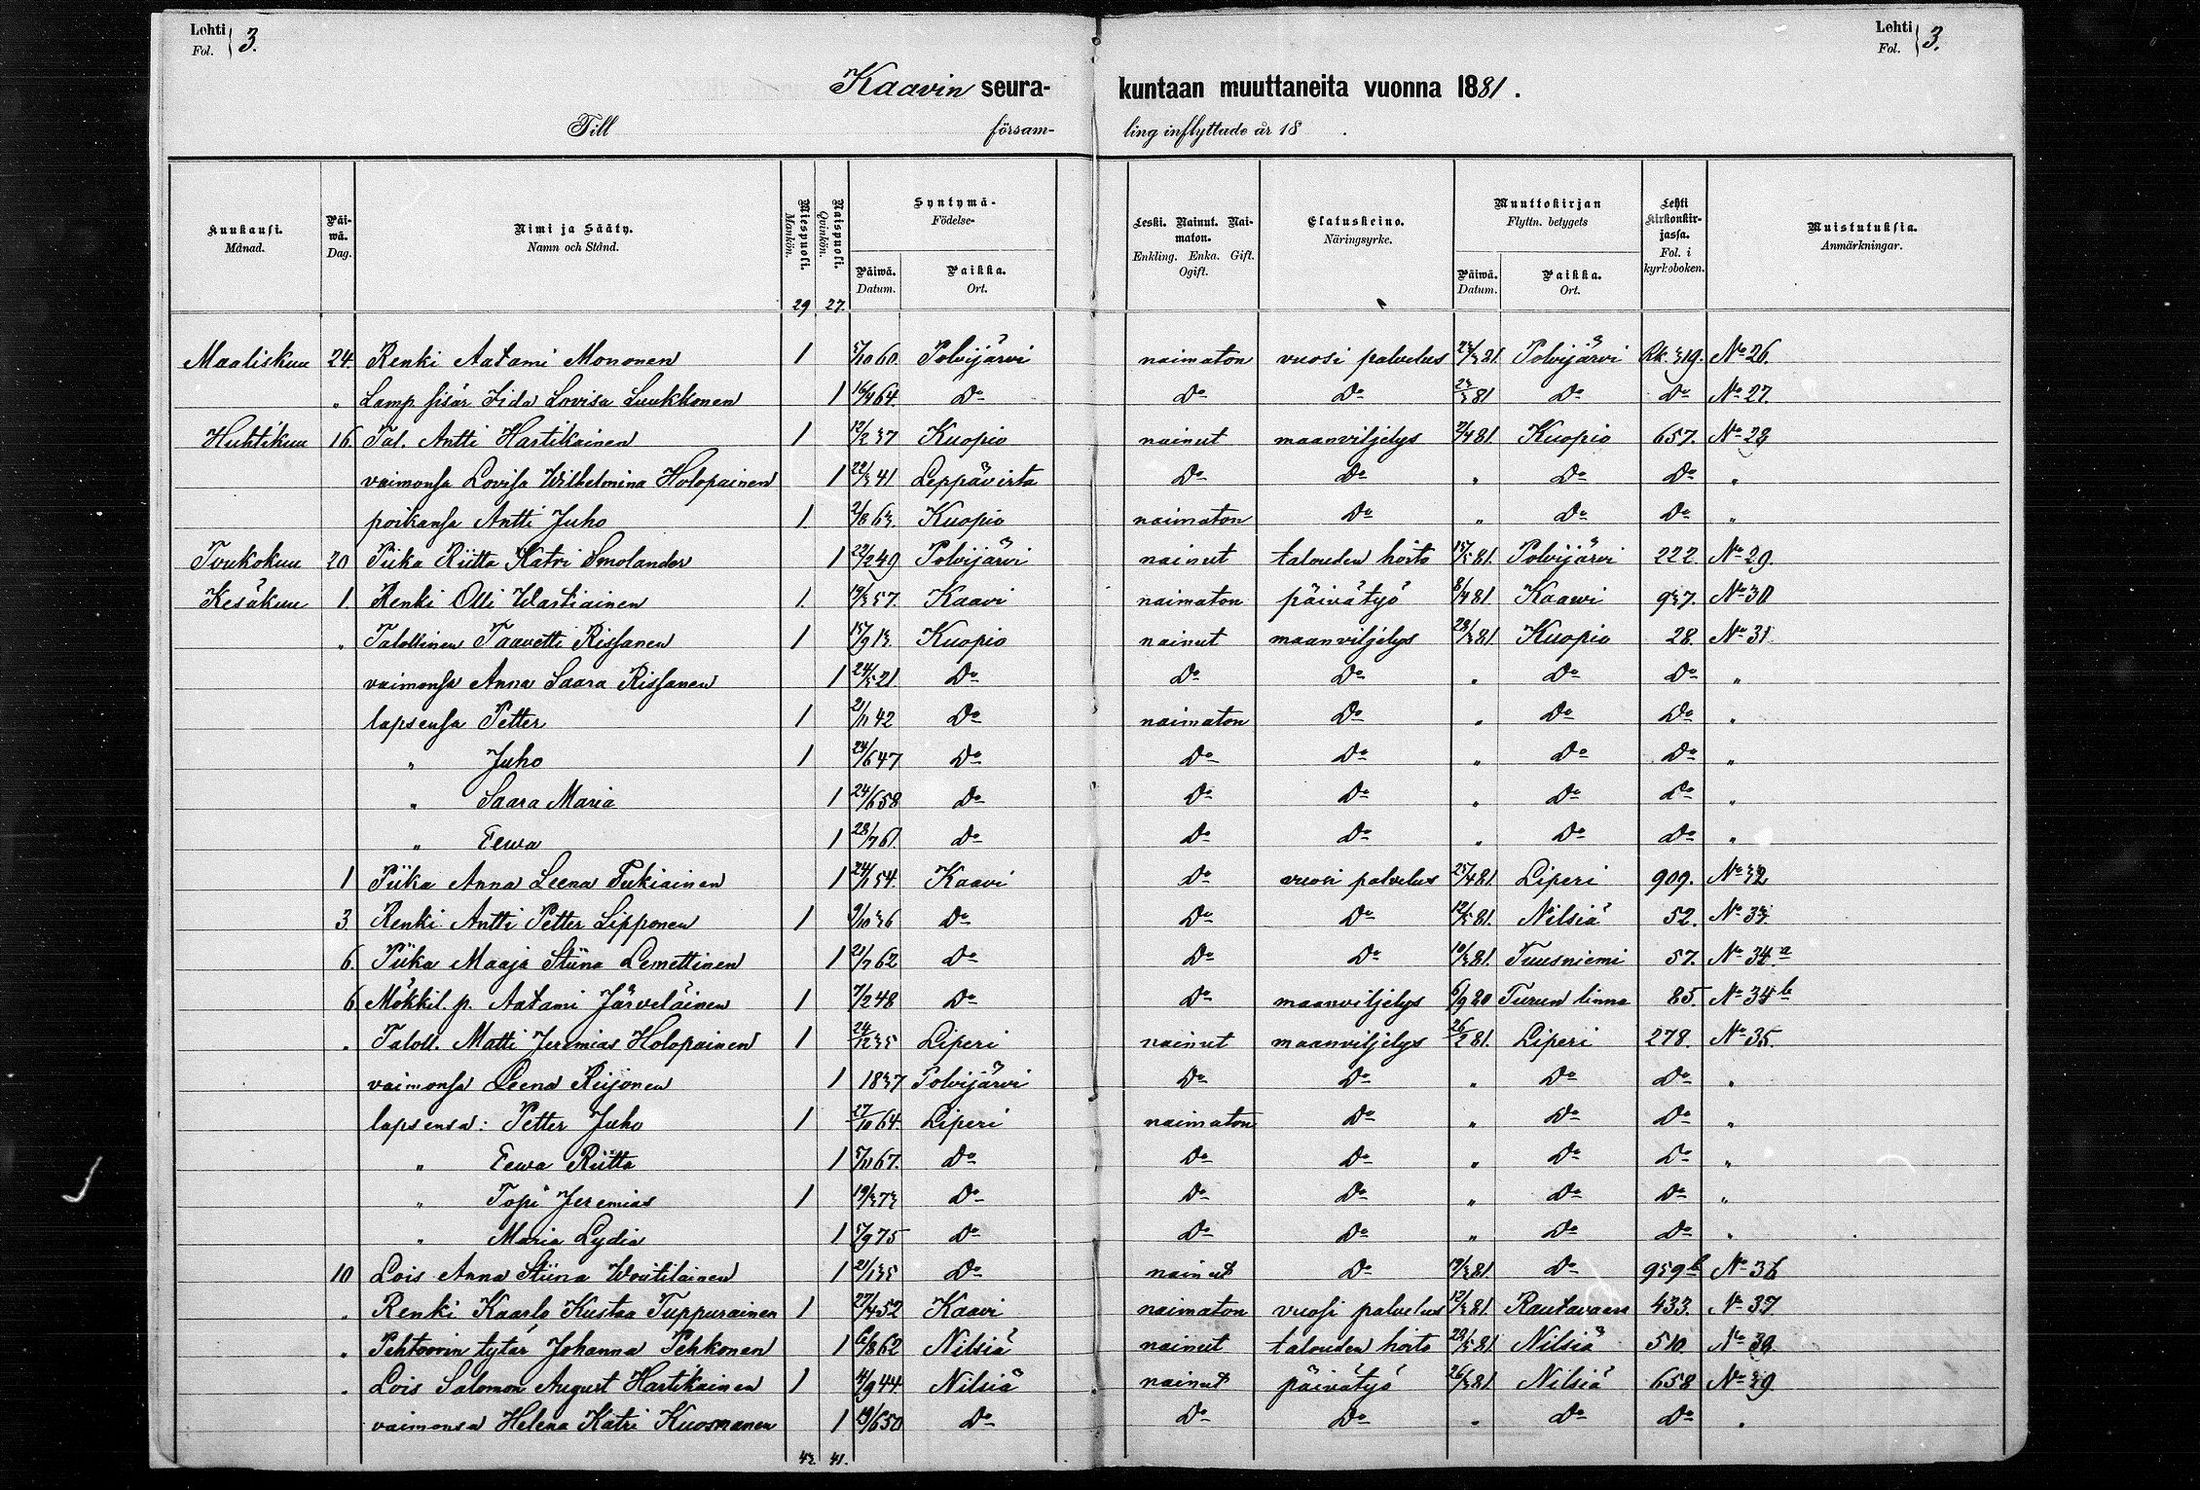 Lehti Fol. } 3.
Lehti Fol. } 3.
Kaavin seura- kuntaan muuttaneita vuonna 1881.
Till försam- ling inflyttade år 18 .
Kuukausi. Månad. Päiwä. Dag. Nimi ja Sääty. Namn och Stånd. Miespuoli. Mankön. Naispuoli. Qvinkön. Syntymä- Födelse- Päiwä. Datum. Paikka. Ort. Leski. Nainut. Naimaton. Enkling. Enka. Gift. Ogift. Elatuskeino. Näringsyrke. Muuttokirjan Flyttn. betygets Päiwä. Datum. Paikka. Ort. Lehti kirkonkirjassa. Fol. i kyrkoboken. Muistutuksia. Anmärkningar.
29 27.
Maaliskuu 24. Renki Aatami Mononen 1 5/10 60. Polvijärvi naimaton vuosi palvelus 23/3 81 Polvijärvi Rk. 319. No 26.
" Lamp. sisär Iida Lovisa Luukkonen 1 64. Do Do Do 81 Do Do No 27.
Huhtikuu 16. Tal. Antti Hartikainen 1 12/2 37 Kuopio nainut maanviljelys 2/4 81. Kuopio 657. No 28
vaimonsa Lovisa Wilhelmina Holopainen 1 22/3 41 Leppävirta Do Do " Do Do "
poikansa Antti Juho 1. 2/8 63. Kuopio naimaton Do " Do Do "
Toukokuu 20 Piika Riitta Katri Smolander 1 22/2 49 Polvijärvi nainut talouden hoito 15/5 81. Polvijärvi 222. No 29.
Kesäkuu 1. Renki Olli Wartiainen 1. 19/3 57. Kaavi naimaton päivätyö 8/4 81. Kaawi 937. No 30
" Talollinen Taavetti Rissanen 1 15/9 13. Kuopio nainut maanviljelys 28/3 81 Kuopio 28. No 31
vaimonsa Anna Saara Rissanen 1 24/5 21 Do Do Do " Do Do "
lapsensa Petter 1 2/11 42 Do naimaton Do " Do Do "
" Juho 1 24/6 47 Do Do Do " Do Do "
" Saara Maria 1 24/6 58 Do Do Do " Do Do "
" Eewa 1 28/7 61. Do Do Do " Do Do "
1 Piika Anna Leena Tukiainen 1 24/1 54. Kaavi Do vuosi palvelus 25/4 81. Liperi 909. No 32
3. Renki Antti Petter Lipponen 1 9/10 36 Do Do Do 12/5 81. Nilsiä 52. No 33.
6. Piika Maaja Stiina Lemettinen 1 21/7 62 Do Do Do 10/3 81. Tuusniemi 57. No 34 a
6. Mökkil. p. Aatami Järveläinen 1 7/2 48 Do Do maanviljelys 6/9 80 Turun linna 85. No 34 b
" Taloll. Matti Jeremias Holopainen 1 24/12 35 Liperi nainut maanviljelys 26/2 81. Liperi 278. No 35.
vaimonsa Leena Reijonen 1 1837 Polvijärvi Do Do " Do Do "
lapsensa: Petter Juho 1 27/10 64. Liperi naimaton Do " Do Do "
" Eewa Riitta 1 5/11 67. Do Do Do " Do Do "
" Topi Jeremias 1 19/3 73 Do Do Do " Do Do "
" Maria Lydia 1 5/9 75 Do Do Do " Do Do "
10 Lois Anna Stiina Woutilainen 1 21/1 35 Do nainut Do 19/3 81. Do 959 b No 36
" Renki Kaarlo Kustaa Tuppurainen 1 27/4 52 Kaavi naimaton vuosi palvelus 12/3 81. Rautavaara 433. No 37
" Pehtoorin tytär Johanna Pehkonen 1 6/8 62 Nilsiä nainut talouden hoito 28/5 81. Nilsiä 510. No 38
" Lois Salomon August Hartikainen 1 4/9 44 Nilsiä nainut päivätyö 26/3 81. Nilsiä 658 No 39
vaimonsa Helena Katri Kuosmanen 1 19/6 50 Do Do Do " Do Do "
43. 41.